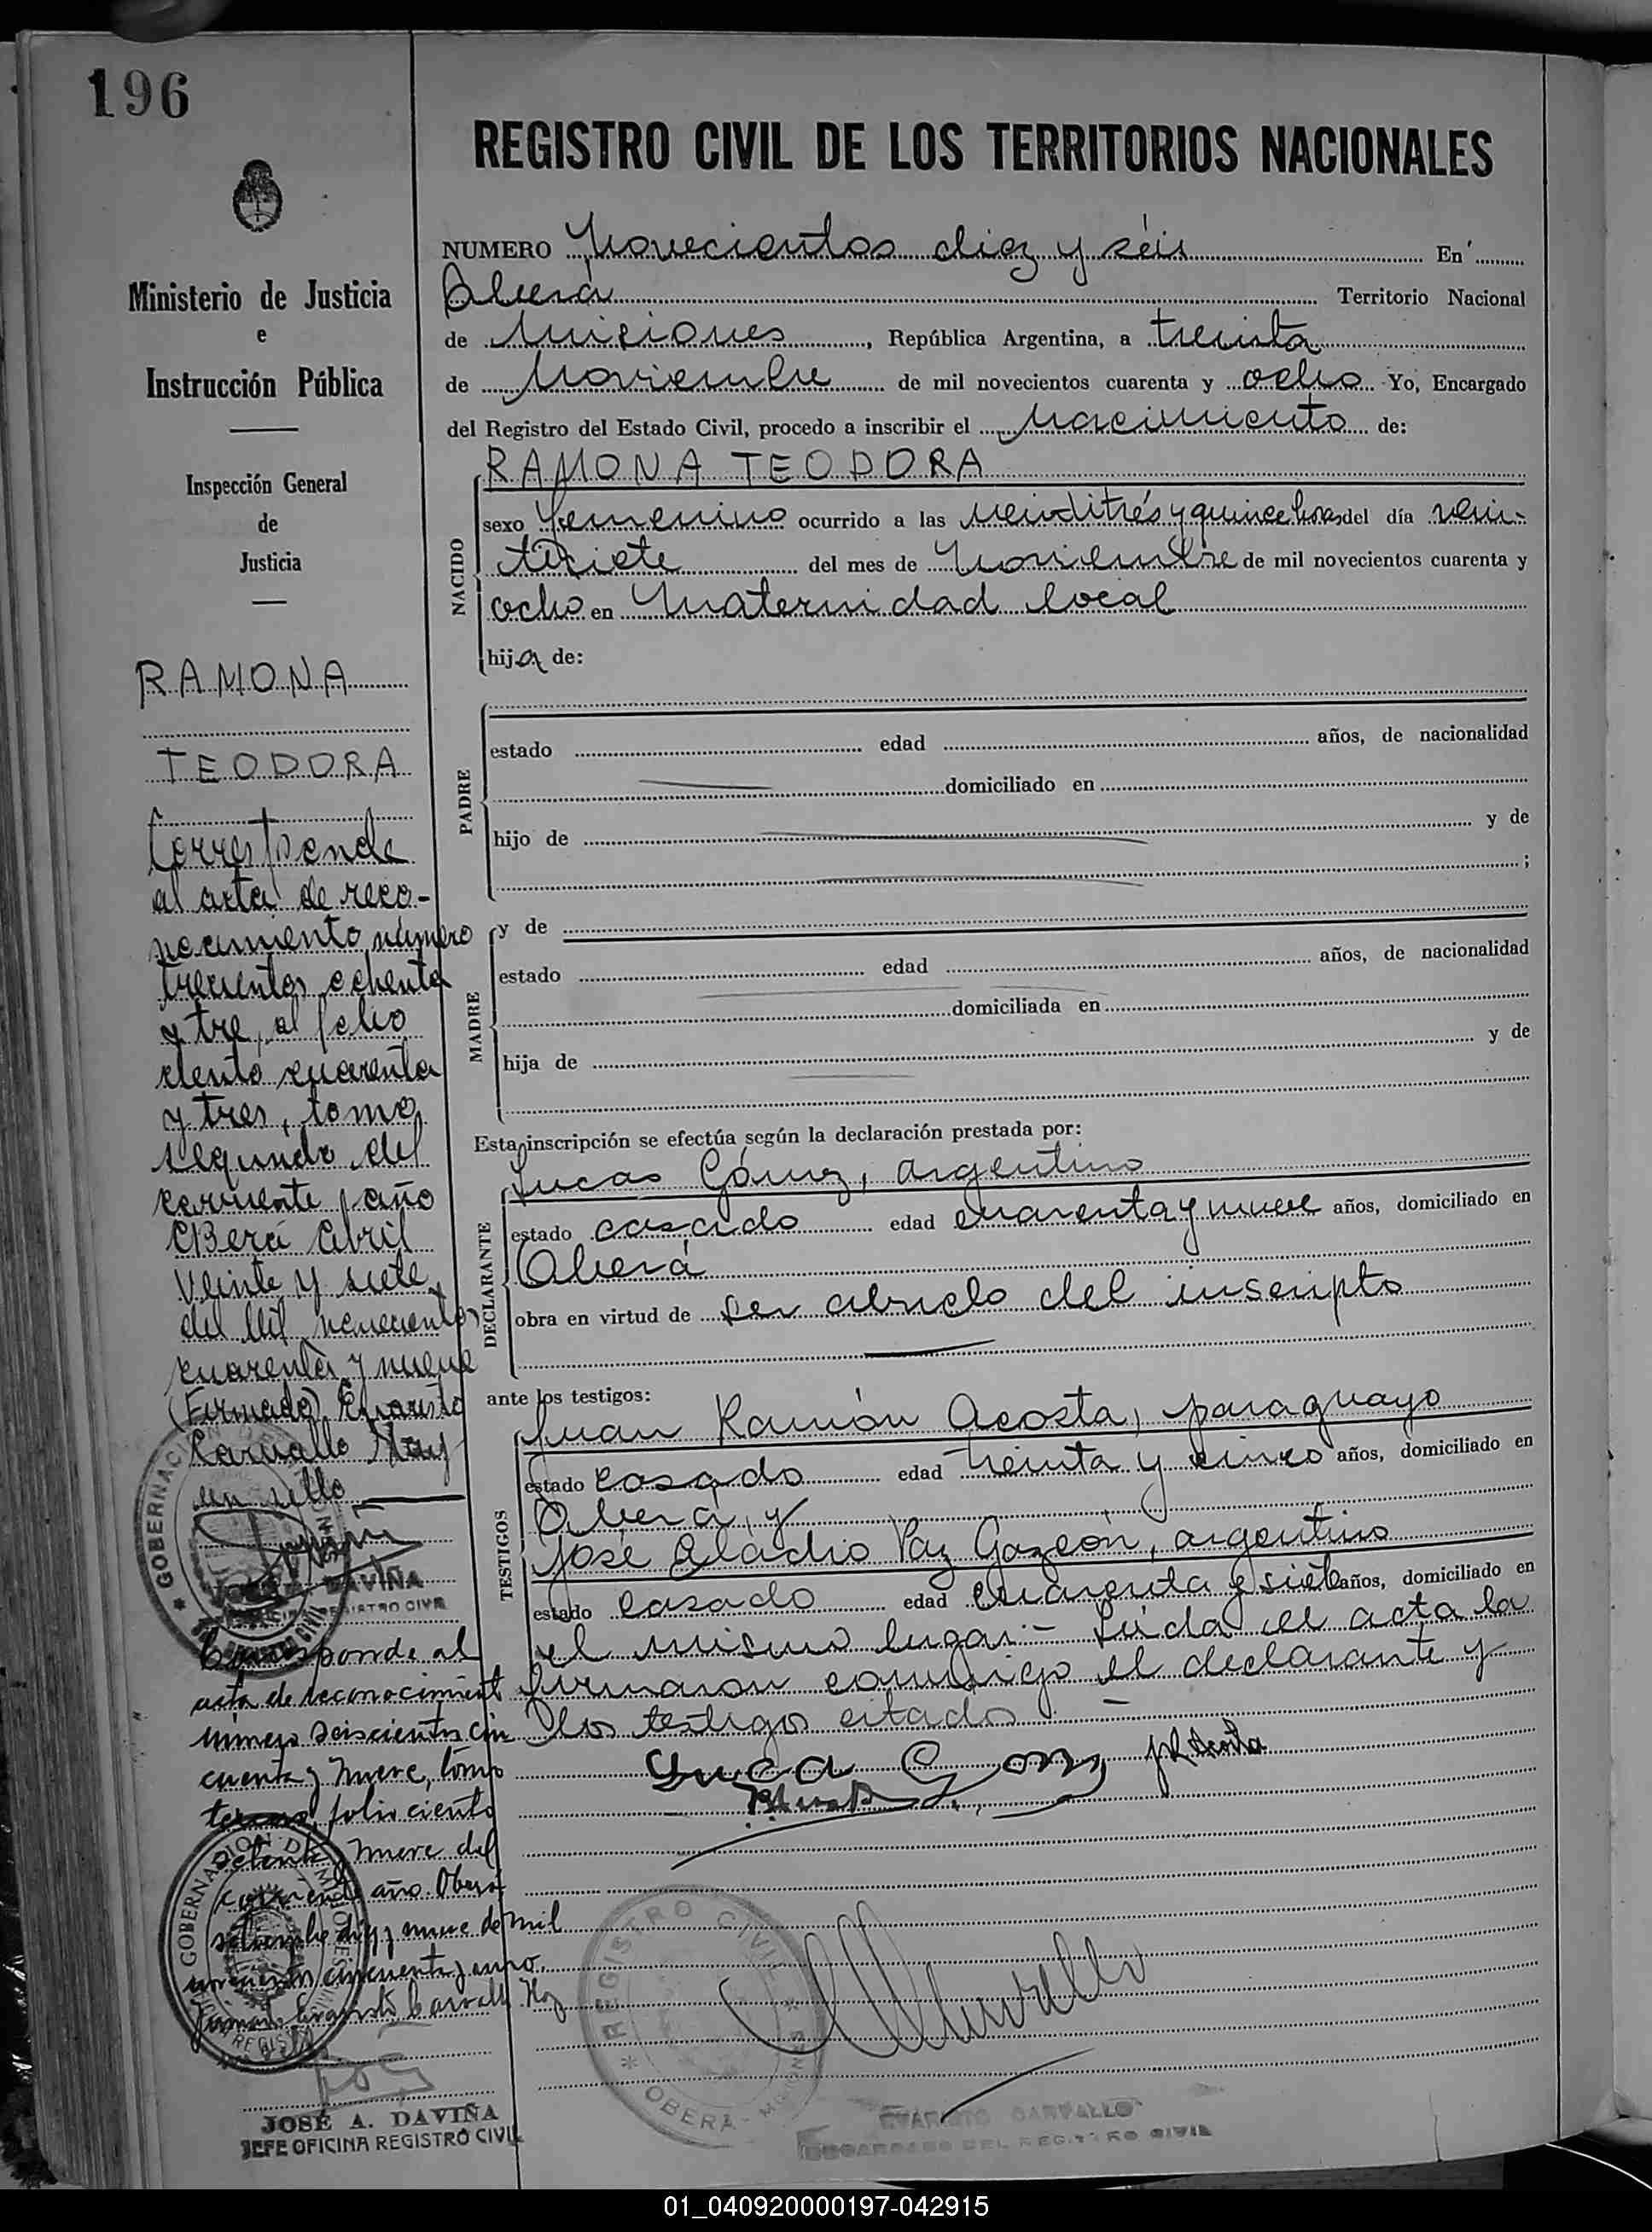 196
Ministerio de Justicia
e
Instrucción Pública
Inspección General
de
Justicia
RAMONA
TEODORA
Corresponde
al acta de reco-
nocimiento número
trecientos ochenta
y tre, al folio
ciento cuarenta
y tres, tomo
segundo del
corriente año
Oberá Abril
veinte y siete
del Mil novecientos
cuarenta y nueve
(Firmado) Evaristo
Carvallo Hay
un sello
DAVIÑA
REGISTRO CIVIL
Corresponde al
acta de reconocimient
número seiscientos cin
cuenta y nueve, tomo
folio ciento
setenta y nueve del
corriente año. Oberá
setiembre diez y nueve de mil
novecientos cincuenta y
Evaristo Carvallo Hay
JOSÉ A. DAVIÑA
JEFE OFICINA REGISTRO CIVIL
REGISTRO CIVIL DE LOS TERRITORIOS NACIONALES
NUMERO Novecientos diez y séis En
Oberá Territorio Nacional
de Misiones, República Argentina, a treinta
de Noviembre de mil novecientos cuarenta y ocho Yo, Encargado
del Registro del Estado Civil, procedo a inscribir el Nacimiento de:
RAMONA TEODORA
NACIDO
sexo femenino ocurrido a las veinditrés y quince horas del día vein-
tisiete del mes de Noviembre de mil novecientos cuarenta y
ocho en Maternidad local
hija de:
PADRE
estado edad años, de nacionalidad
domiciliado en
hijo de y de
;
MADRE
y de
estado edad años, de nacionalidad
domiciliada en
hija de y de
Esta inscripción se efectúa según la declaración prestada por:
DECLARANTE
Lucas Gómez, argentino
estado casado edad cuarenta y nueve años, domiciliado en
Oberá
obra en virtud de ser abuelo del inscripto
ante los testigos:
TESTIGOS
Juan Ramón Acosta, paraguayo
estado casado edad treinta y cinco años, domiciliado en
Oberá, y
José Eladio Paz Gazeón, argentino
estado casado edad cuarenta y siete años, domiciliado en
el mismo lugar.- Leída el acta la
firmaron conmigo el declarante y
los testigos citados
J R Acosta
REGISTRO CIVIL
OBERÁ - MISIONES
EVARISTO CARVALLO
ENCARGADO DEL REGISTRO CIVIL
01_040920000197-042915